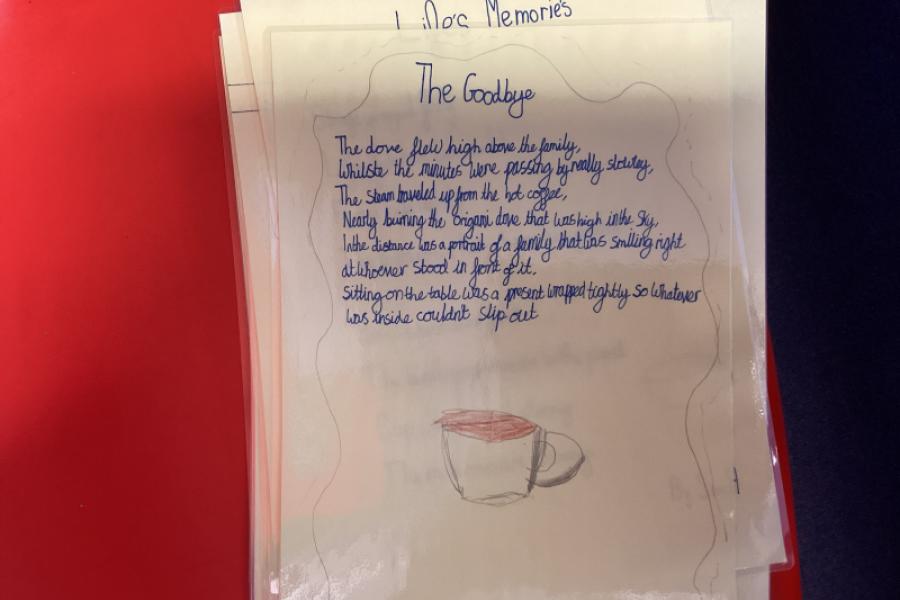 Memories
The Goodbye
The dove flew high above the family,
Whilste the minutes were passing by really slowley,
The steam traveled up from the hot coffee,
Nearly burning the origami dove that was high in the sky,
In the distance was a portrait of a family that was smiling right
at whoever stood in front of it.
Sitting on the table was a present wrapped tightly so whatever
was inside couldn't slip out